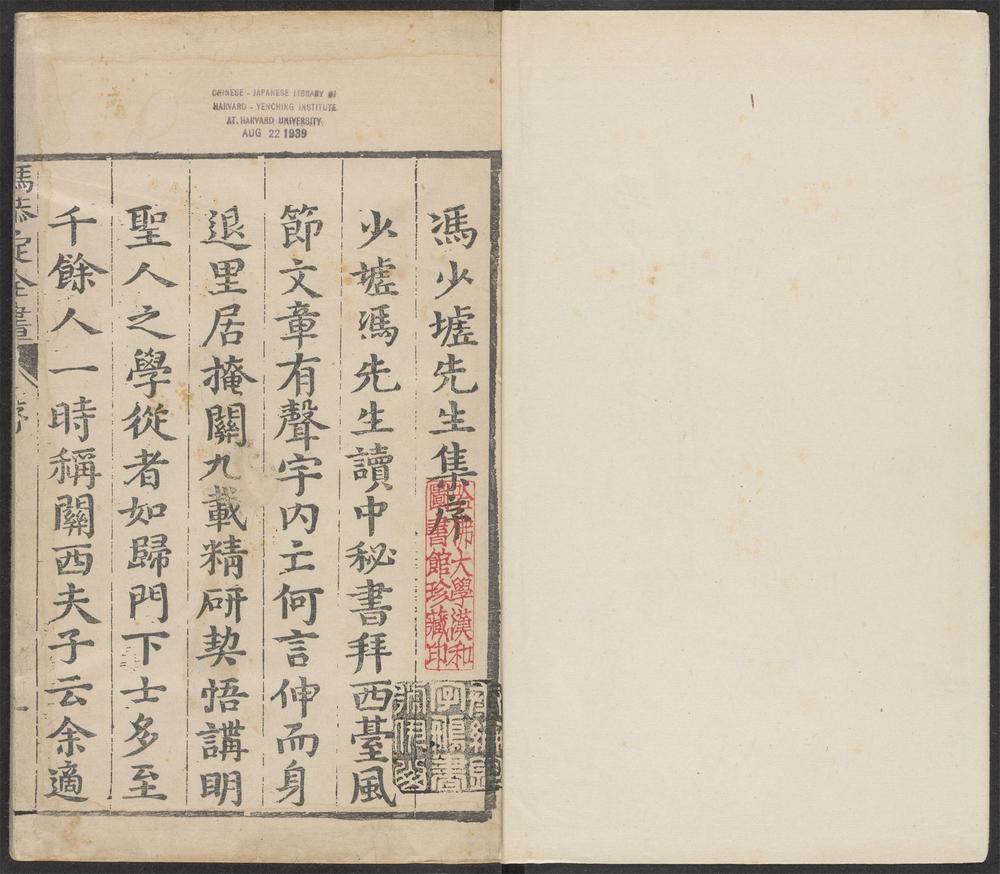 CHINESE - JAPANESE LIBRARY OF
HARVARD - YENCHING INSTITUTE
AT HARVARD UNIVERSITY
AUG 22 1939
馮少墟先生集序
少墟馮先生讀中秘書拜西臺風
節文章有聲宇内亡何言伸而身
退里居掩關九載精研契悟講明
聖人之學從者如歸門下士多至
千餘人一時稱關西夫子云余適
馮恭定全書
序
一
哈佛大學漢和
圖書館珍藏印